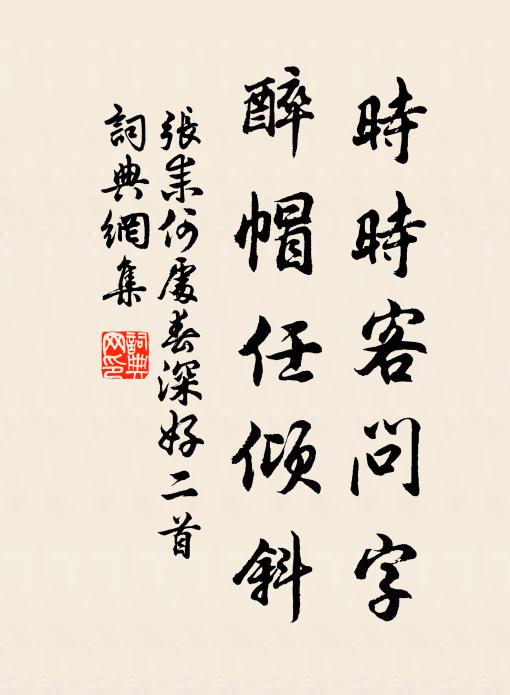 時時客問字
醉帽任傾斜
張耒何處春深好二首
詞典網集
詞典
网印